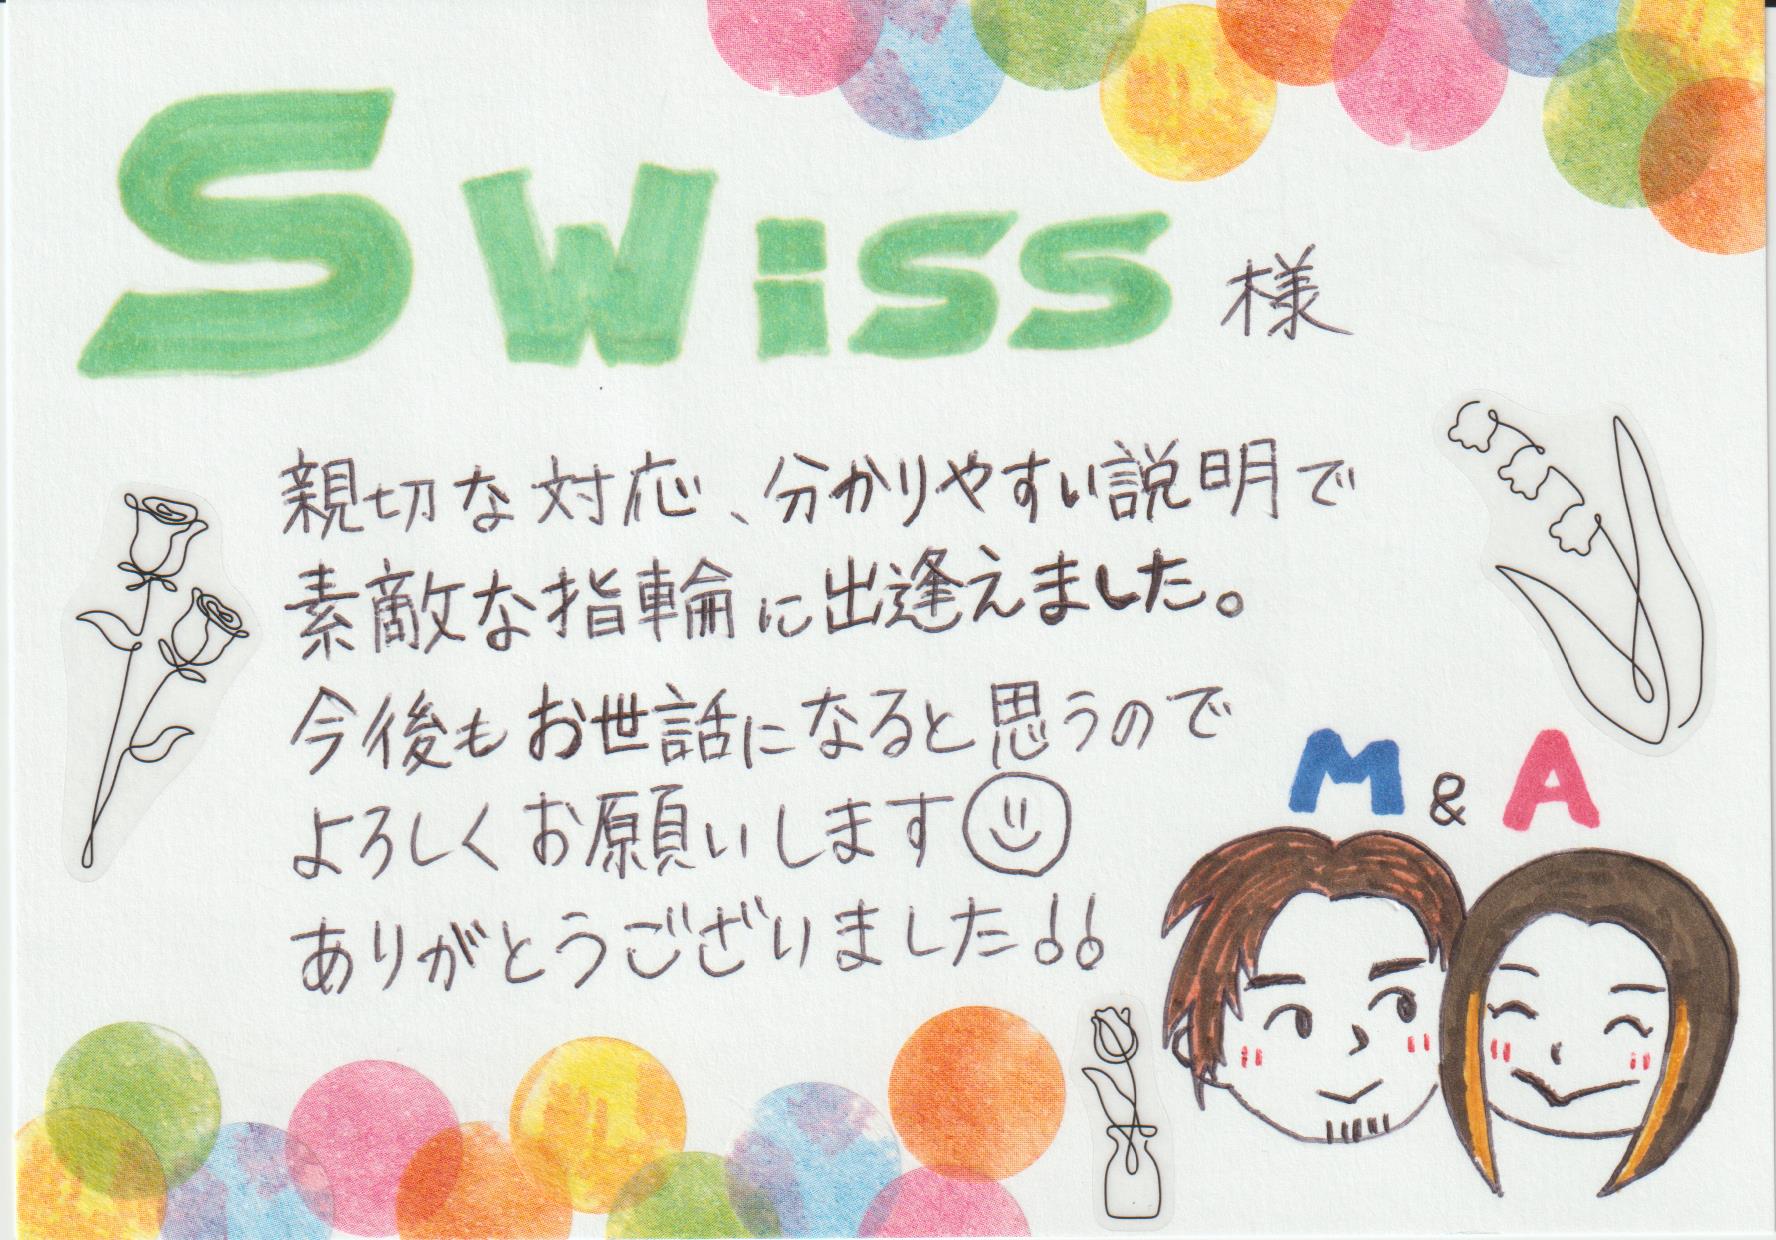 Swiss 様
親切な対応、分かりやすい説明で
素敵な指輪に出逢えました。
今後もお世話になると思うので
よろしくお願いします
ありがとうございました!!
M & A